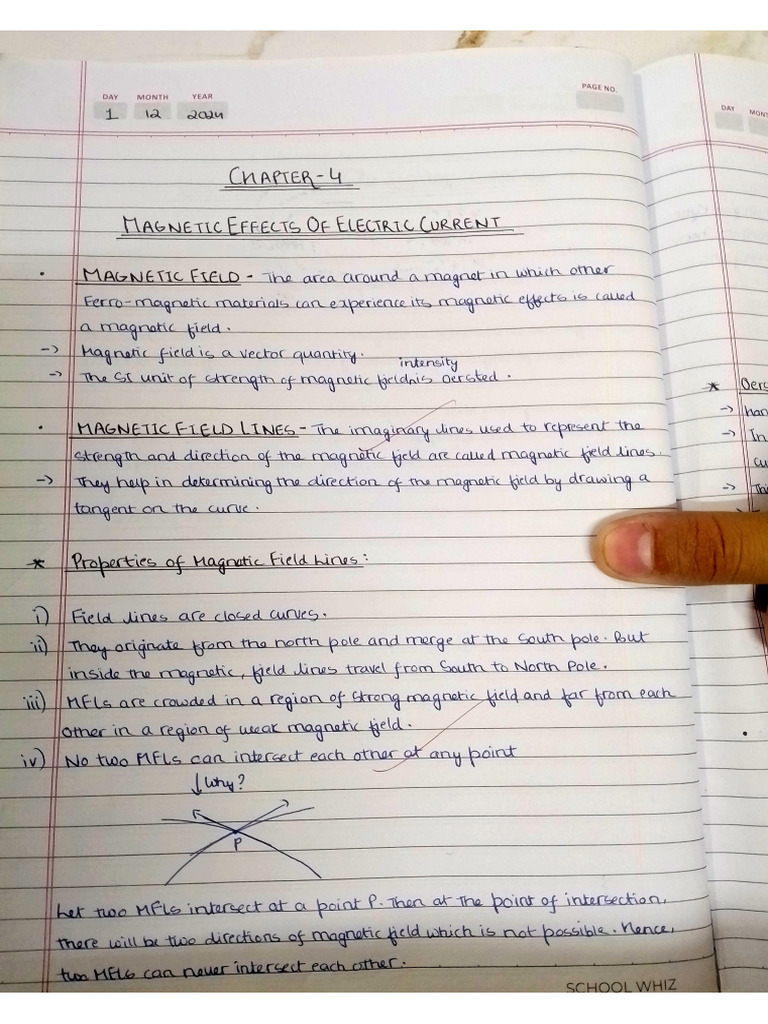 DAY MONTH YEAR
1 12 2024
PAGE NO.
DAY
CHAPTER-4
MAGNETIC EFFECTS OF ELECTRIC CURRENT
• MAGNETIC FIELD - The area around a magnet in which other
Ferro-magnetic materials can experience its magnetic effects is called
a magnetic field.
-> Magnetic field is a vector quantity.
intensity
-> The SI unit of strength of magnetic field is Oersted.
• MAGNETIC FIELD LINES - The imaginary lines used to represent the
strength and direction of the magnetic field are called magnetic field lines.
-> They help in determining the direction of the magnetic field by drawing a
tangent on the curve.
* Properties of Magnetic Field Lines:
i) Field lines are closed curves.
ii) They originate from the north pole and merge at the South pole. But
inside the magnetic, field lines travel from South to North Pole.
iii) MFLs are crowded in a region of strong magnetic field and far from each
other in a region of weak magnetic field.
iv) No two MFLs can intersect each other at any point
↓ Why?
P
Let two MFLs intersect at a point P. Then at the point of intersection,
there will be two directions of magnetic field which is not possible. Hence,
two MFLs can never intersect each other.
SCHOOL WHIZ
* Oers
-> han
-> In
cu
-> Thi